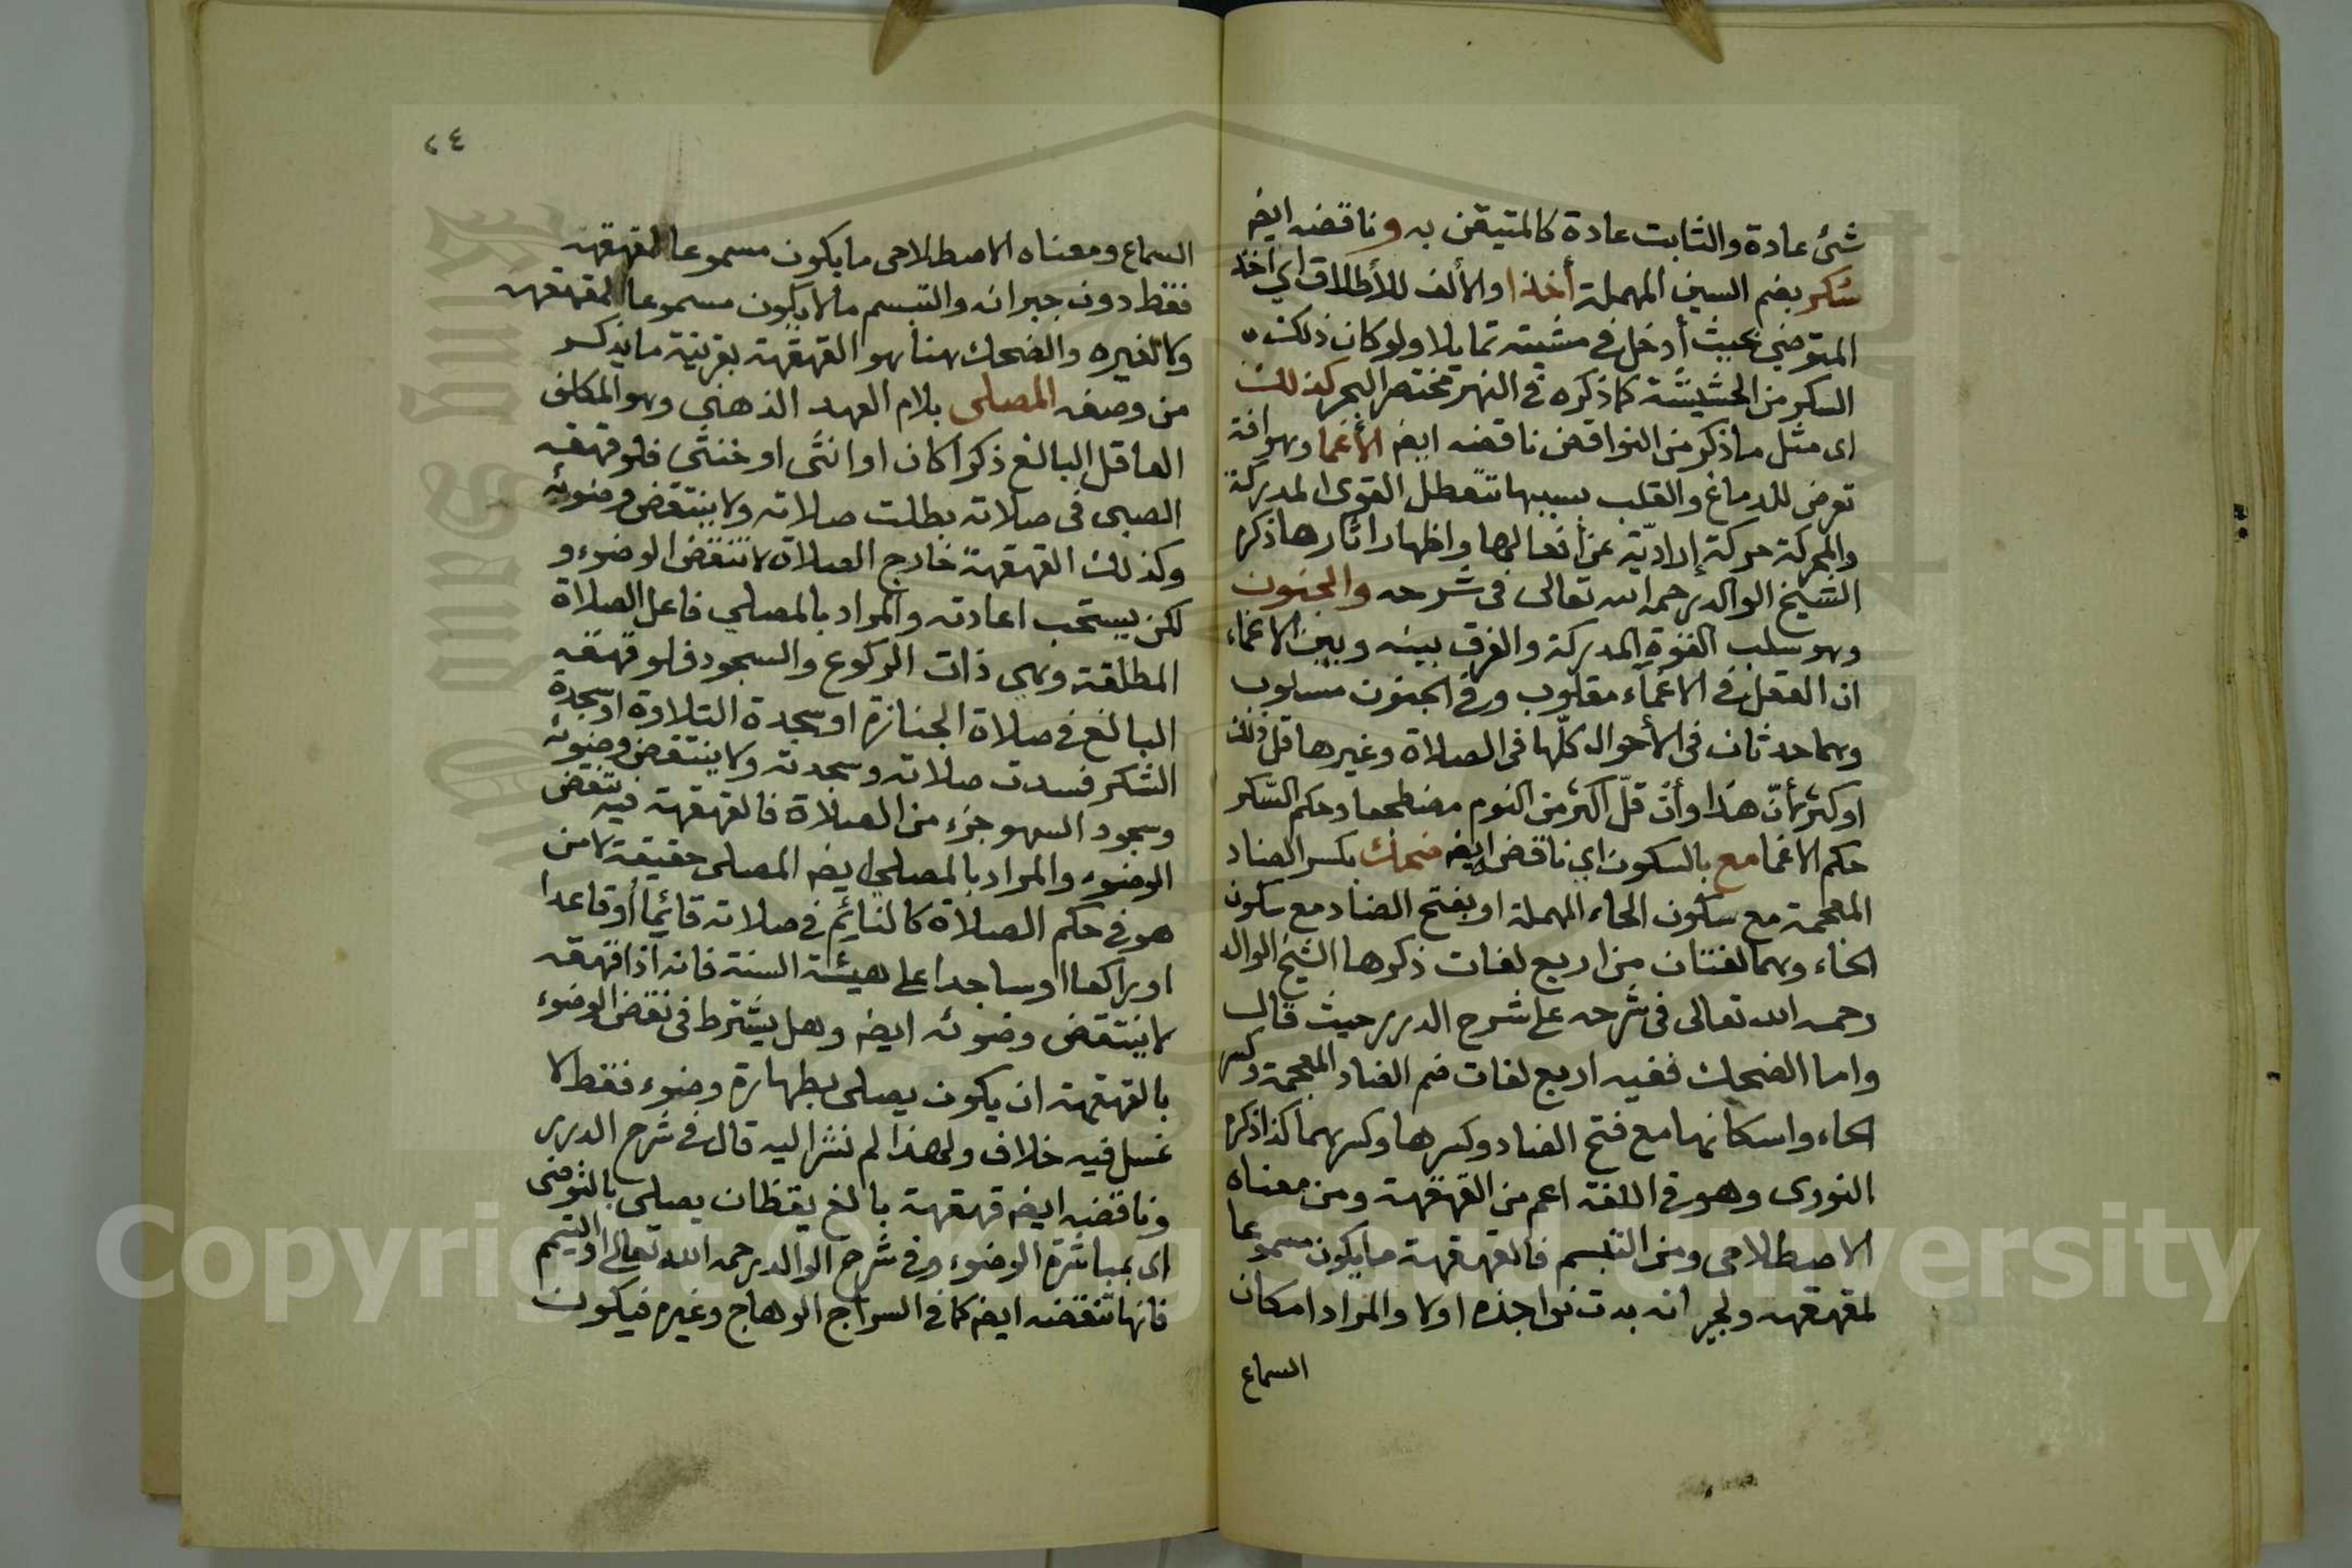 شئ عادة والثابت عادة كالمتيقن به وناقضه ايضا
سكر بضم السين المهملة أخذا والألف للأطلاق اي اخذ
المتوضي بحيث أدخل في مشيته تمايلا ولو كان ذلك
السكر من الحشيشة كما ذكره في النهر مختصر البحر كذلك
اى مثل ما ذكر من النواقض ناقضه ايضا الأغما وهو افة
تعرض للدماغ والقلب بسببها تتعطل القوى المدركة
والمحركة حركة إرادية عن أفعالها واظهار اثارها ذكره
الشيخ الوالد رحمه الله تعالى في شرحه والجنون
وهو سلب القوة المدركة والفرق بينه وبين الاغماء
ان العقل في الاغماء مغلوب وفي الجنون مسلوب
وهما حدثان في الأحوال كلّها في الصلاة وغيرها قل ذلك
او كثر لأنّ هذا وأن قلّ اكثر من النوم مضطجعا وحكم السّكر
حكم الاغما مع بالسكون اي ناقض ايضا ضحك بكسر الضاد
المعجمة مع سكون الحاء المهملة او بفتح الضاد مع سكون
الحاء وهما لغتان من اربع لغات ذكرها الشيخ الوالد
رحمه الله تعالى في شرحه على شرح الدرر حيث قال
واما الضحك ففيه اربع لغات ضم الضاد المعجمة وكسر
الحاء واسكانها مع فتح الضاد وكسرها وكسرهما كذا ذكره
النووى وهو في اللغة اعم من القهقهة ومن معناه
الاصطلاحى ومن التبسم فالقهقهة ما يكون مسموعا
لمقهقهه ولجيرانه بدت نواجذه اولا والمراد امكان
السماع
٢٤
السماع ومعناه الاصطلاحى ما يكون مسموعا لمقهقهه
فقط دون جيرانه والتبسم ما لا يكون مسموعا لمقهقهه
ولا لغيره والضحك هنا هو القهقهة بقرينة ما يذكر
من وصفه المصلى بلام العهد الذهني وهو المكلف
العاقل البالغ ذكرا كان او انثى او خنثى فلو قهقه
الصبى في صلاته بطلت صلاته ولا ينتقض وضوئه
وكذلك القهقهة خارج الصلاة لا تنقض الوضوء و
لكن يستحب اعادته والمراد بالمصلي فاعل الصلاة
المطلقة وهى ذات الركوع والسجود فلو قهقه
البالغ في صلاة الجنازة او سجدة التلاوة او سجدة
الشكر فسدت صلاته وسجدته ولا ينتقض وضوئه
وسجود السهو جزء من الصلاة فالقهقهة فيه تنقض
الوضوء والمراد بالمصلي ايضا المصلى حقيقة لا من
هو في حكم الصلاة كالنايم في صلاته قائما أو قاعدا
او راكعا او ساجدا على هيئة السنة فانه اذا قهقه
لا ينتقض وضوئه ايضا وهل يشترط في نقض الوضوء
بالقهقهة ان يكون يصلى بطهارة وضوء فقط لا
غسل فيه خلاف ولهذا لم نشر اليه قال في شرح الدرر
وناقضه ايضا قهقهة بالغ يقظان يصلى بالتوضى
اى بمباشرة الوضوء وفي شرح الوالد رحمه الله تعالى او التيمم
فانها تنقضه ايضا كما في السراج الوهاج وغيره فيكون
Copyright © King Saud University